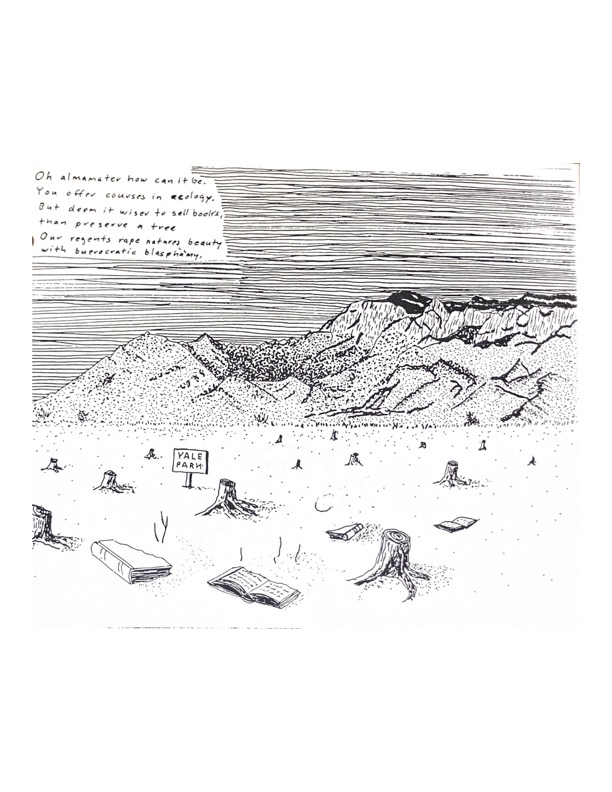 Oh almamater how can it be.
You offer courses in ecology.
But deem it wiser to sell books,
than preserve a tree
Our regents rape natures beauty
with buerocratic blasphamy.
YALE
PARK